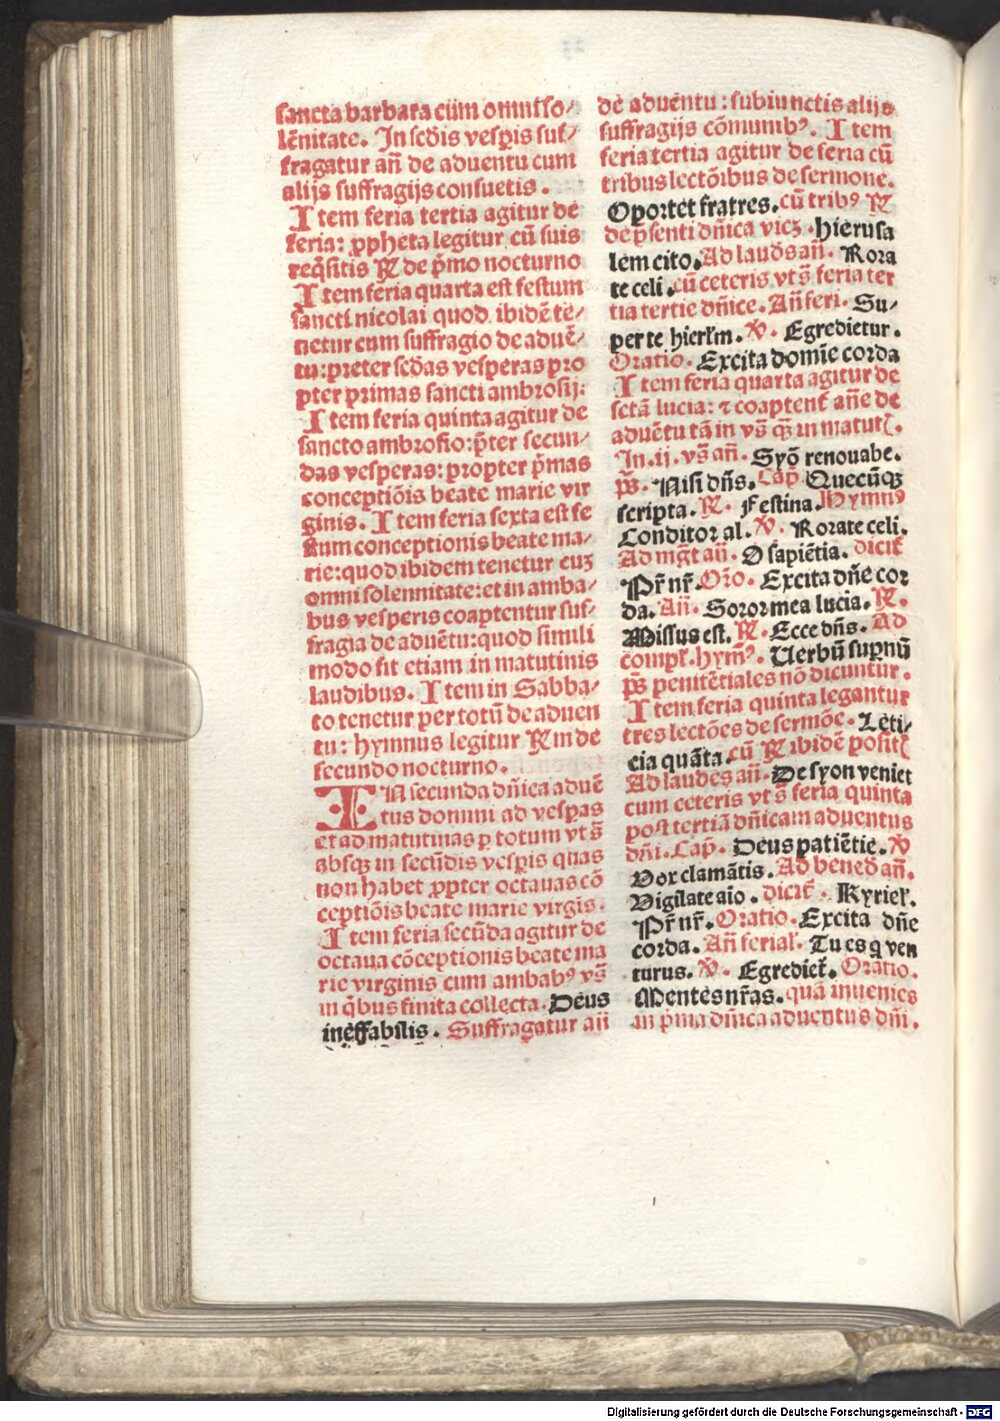 sancta barbara cũm omni so/
lẽnitate. In scďis vesꝑis suf/
fragatur añ de aduentu cum
alijs suffragijs consuetis.
Item feria tertia agitur de
feria: ꝓpheta legitur cũ suis
reqͥsitis ℟ de pͥmo nocturno
Item feria quarta est festum
sancti nicolai quod ibidẽ te/
netur cum suffragio de aduẽ/
tu: preter scďas vesperas pro
pter primas sancti ambrosij:
Item feria quinta agitur de
sancto ambrosio: p̃ter secun/
das vesperas: propter pͥmas
conceptiõis beate marie vir
ginis. Item feria sexta est fe
stum conceptionis beate ma/
rie: quod ibidem tenetur cuꝫ
omni solennitate: et in amba/
bus vesperis coaptentur suf/
fragia de aduẽtu: quod simili
modo fit etiam in matutinis
laudibus. Item in Sabba/
to tenetur per totũ de aduen
tu: hymnus legitur ℟m de
secundo nocturno.
IN secunda dñica aduẽ
tus domini ad vesꝑas
et ad matutinas ꝑ totum vt s̃
absqꝫ in secũdis vesꝑis quas
non habet ꝓpter octauas cõ
ceptiõis beate marie virgĩs.
Item feria secũda agitur de
octaua cõceptionis beate ma
rie virginis cum ambabꝰ vs̃
in qͥbus finita collecta. Deus
ineffabilis. Suffragatur añ
de aduẽntu: subiunctis alijs
suffragijs cõmunibꝰ. Item
feria tertia agitur de feria cũ
tribus lectõibus de sermone.
Oportet fratres. cũ tribꝰ ℟
de p̃senti dñica vicꝫ. hierusa
lem cito. Ad laudes añ. Rora
te celi. cũ ceteris vt s̃ feria ter
tia tertie dñice. Añ feri. Su/
per te hierłm. ℣. Egredietur.
Oratio. Excita domĩe corda
Item feria quarta agitur de
sctã lucia: ⁊ coaptent̃ añe de
aduẽtu tã in vs̃ qꝫ̃ in matut̃.
In .ij. vs̃ añ. Syõ renouabe.
p̃s. Nisi dñs. Cap̃. Quecũqꝫ
scripta. ℟. Festina. Hymnꝰ
Conditor al. ℣. Rorate celi.
Ad mg̃t añ. O sapiẽtia. dicit̃
Pr̃ nr̃. Orõ. Excita dñe cor
da. Añ. Soror mea lucia. ℟.
Missus est. ℟. Ecce dñs. Ad
compł. hymꝰ. Uerbũ supnũ
p̃s penitẽtiales nõ dicuntur.
Item feria quinta legantur
tres lectões de sermõe. Leti/
cia quãta. cũ ℟ ibidẽ posit̃
Ad laudes añ. De syon veniet
cum ceteris vt s̃ feria quinta
post tertiã dñicam aduentus
dñi. Cap̃. Deus patiẽtie. ℣
Vox clamãtis. Ad bened añ.
Vigilate aĩo. dicit̃. Kyrieł.
Pr̃ nr̃. Oratio. Excita dñe
corda. Añ ferial̃. Tu es q ven
turus. ℣. Egrediet̃. Oratio.
Mentes nr̃as. quã inuenies
in pͥma dñica aduentus dñi.
Digitalisierung gefördert durch die Deutsche Forschungsgemeinschaft - DFG